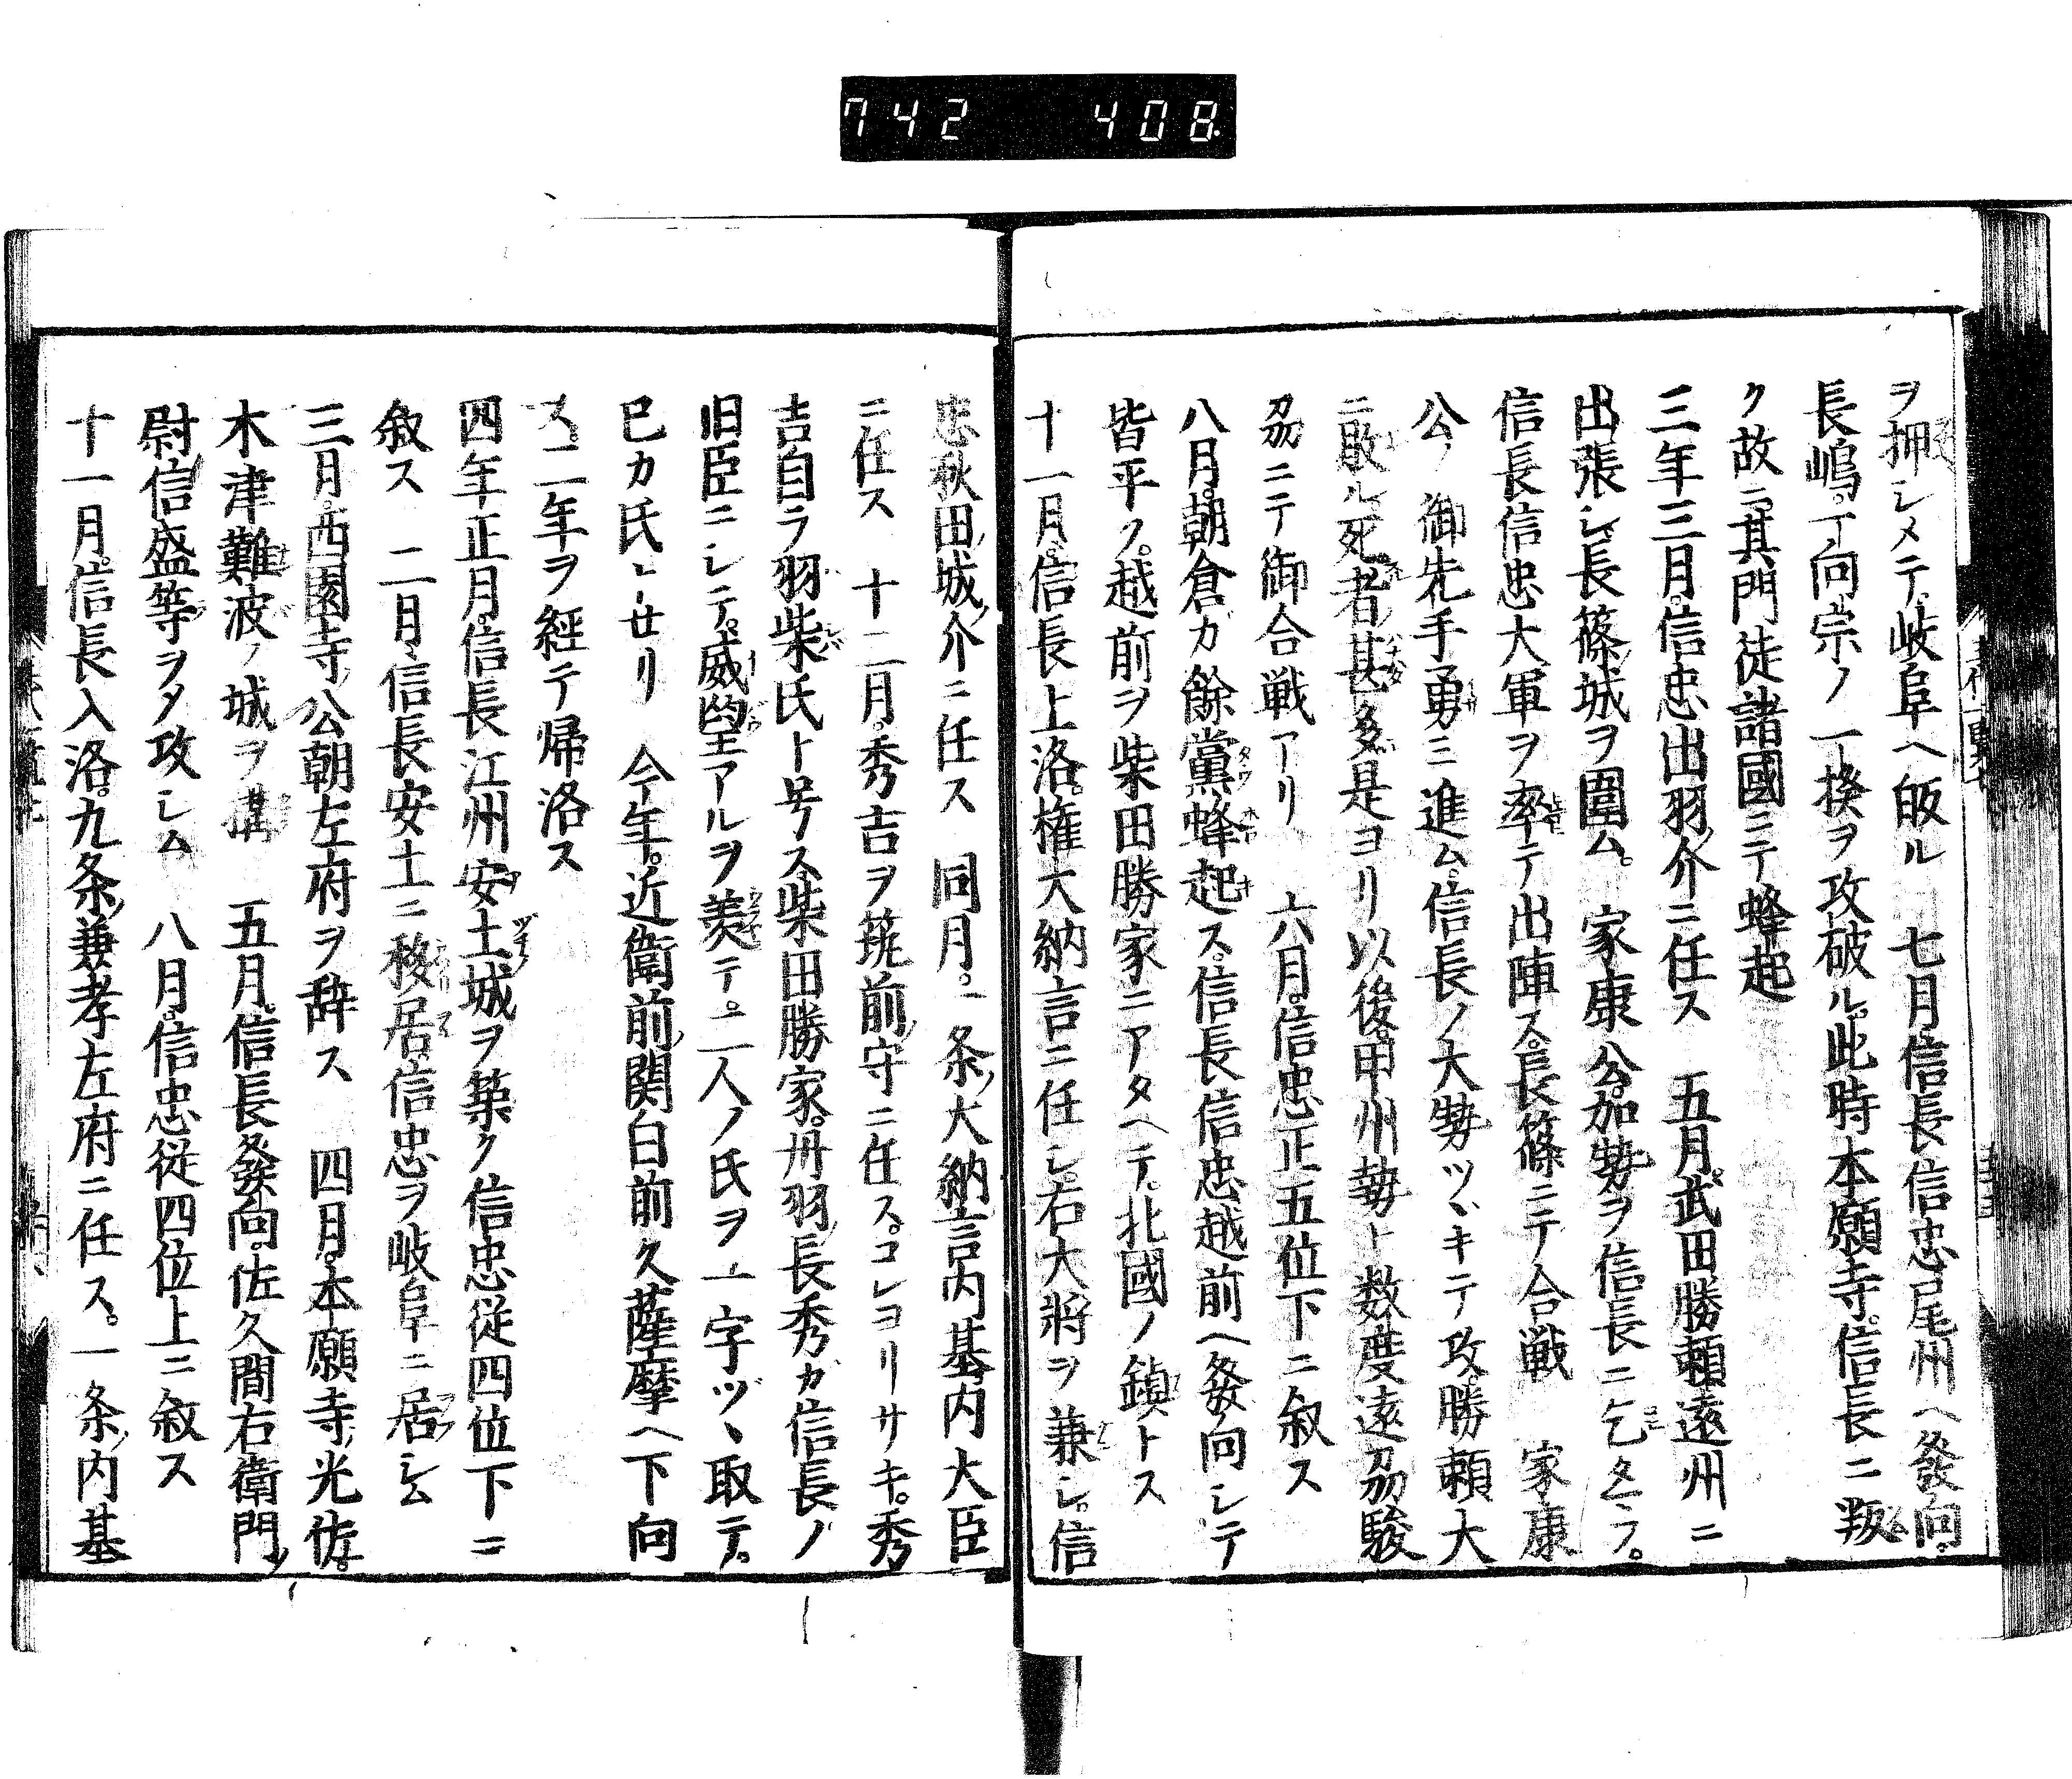 742 408
ヲ押シメテ。岐阜ヘ皈ル 七月。信長信忠尾州ヘ發向。
長嶋。一向宗ノ一揆ヲ攻破ル。此時本願寺。信長ニ叛
ク故ニ。其門徒諸國ニテ蜂起
三年三月。信忠出羽ノ介ニ任ス 五月。武田勝頼遠州ニ
出張シ。長篠ノ城ヲ圍ム。 家康公。加勢ヲ信長ニ乞タマフ。
信長信忠大軍ヲ率テ出陣ス。長篠ニテ合戦 家康
公ノ御先手勇ミ進ム。信長ノ大勢ツヾキテ攻。勝頼大
ニ敗ル死者甚多是ヨリ以後。甲州勢ト数度遠刕駿
刕ニテ御合戦アリ 六月。信忠正五位下ニ叙ス
八月。朝倉ガ餘黨蜂起ス。信長信忠越前ヘ發向シテ
皆平ク。越前ヲ柴田勝家ニアタヘテ。北國ノ鎮トス
十一月。信長上洛。権大納言ニ任シ。右大將ヲ兼シ。信
忠秋田ノ城ノ介ニ任ス 同月。一条ノ大納言内基内大臣
ニ任ス 十二月。秀吉ヲ筑前ノ守ニ任ス。コレヨリサキ。秀
吉自ラ羽柴氏ト号ス。柴田勝家。丹羽ノ長秀ガ信長ノ
旧臣ニシテ。威望アルヲ羨テ。二人ノ氏ヲ一字ヅヽ取テ。
己カ氏トセリ 今年。近衛前ノ関白前久薩摩ヘ下向
ス。二年ヲ經テ帰洛ス
四年正月。信長江州安土城ヲ築ク信忠従四位下ニ
叙ス 二月。信長安土ニ移居。信忠ヲ岐阜ニ居シム
三月。西園寺ノ公朝左府ヲ辞ス 四月。本願寺ノ光佐。
木津難波ノ城ヲ構 五月。信長發向。佐久間右衛門ノ
尉信盛等ヲメ攻シム 八月。信忠従四位上ニ叙ス
十一月。信長入洛。九条ノ兼孝左府ニ任ス。一条ノ内基